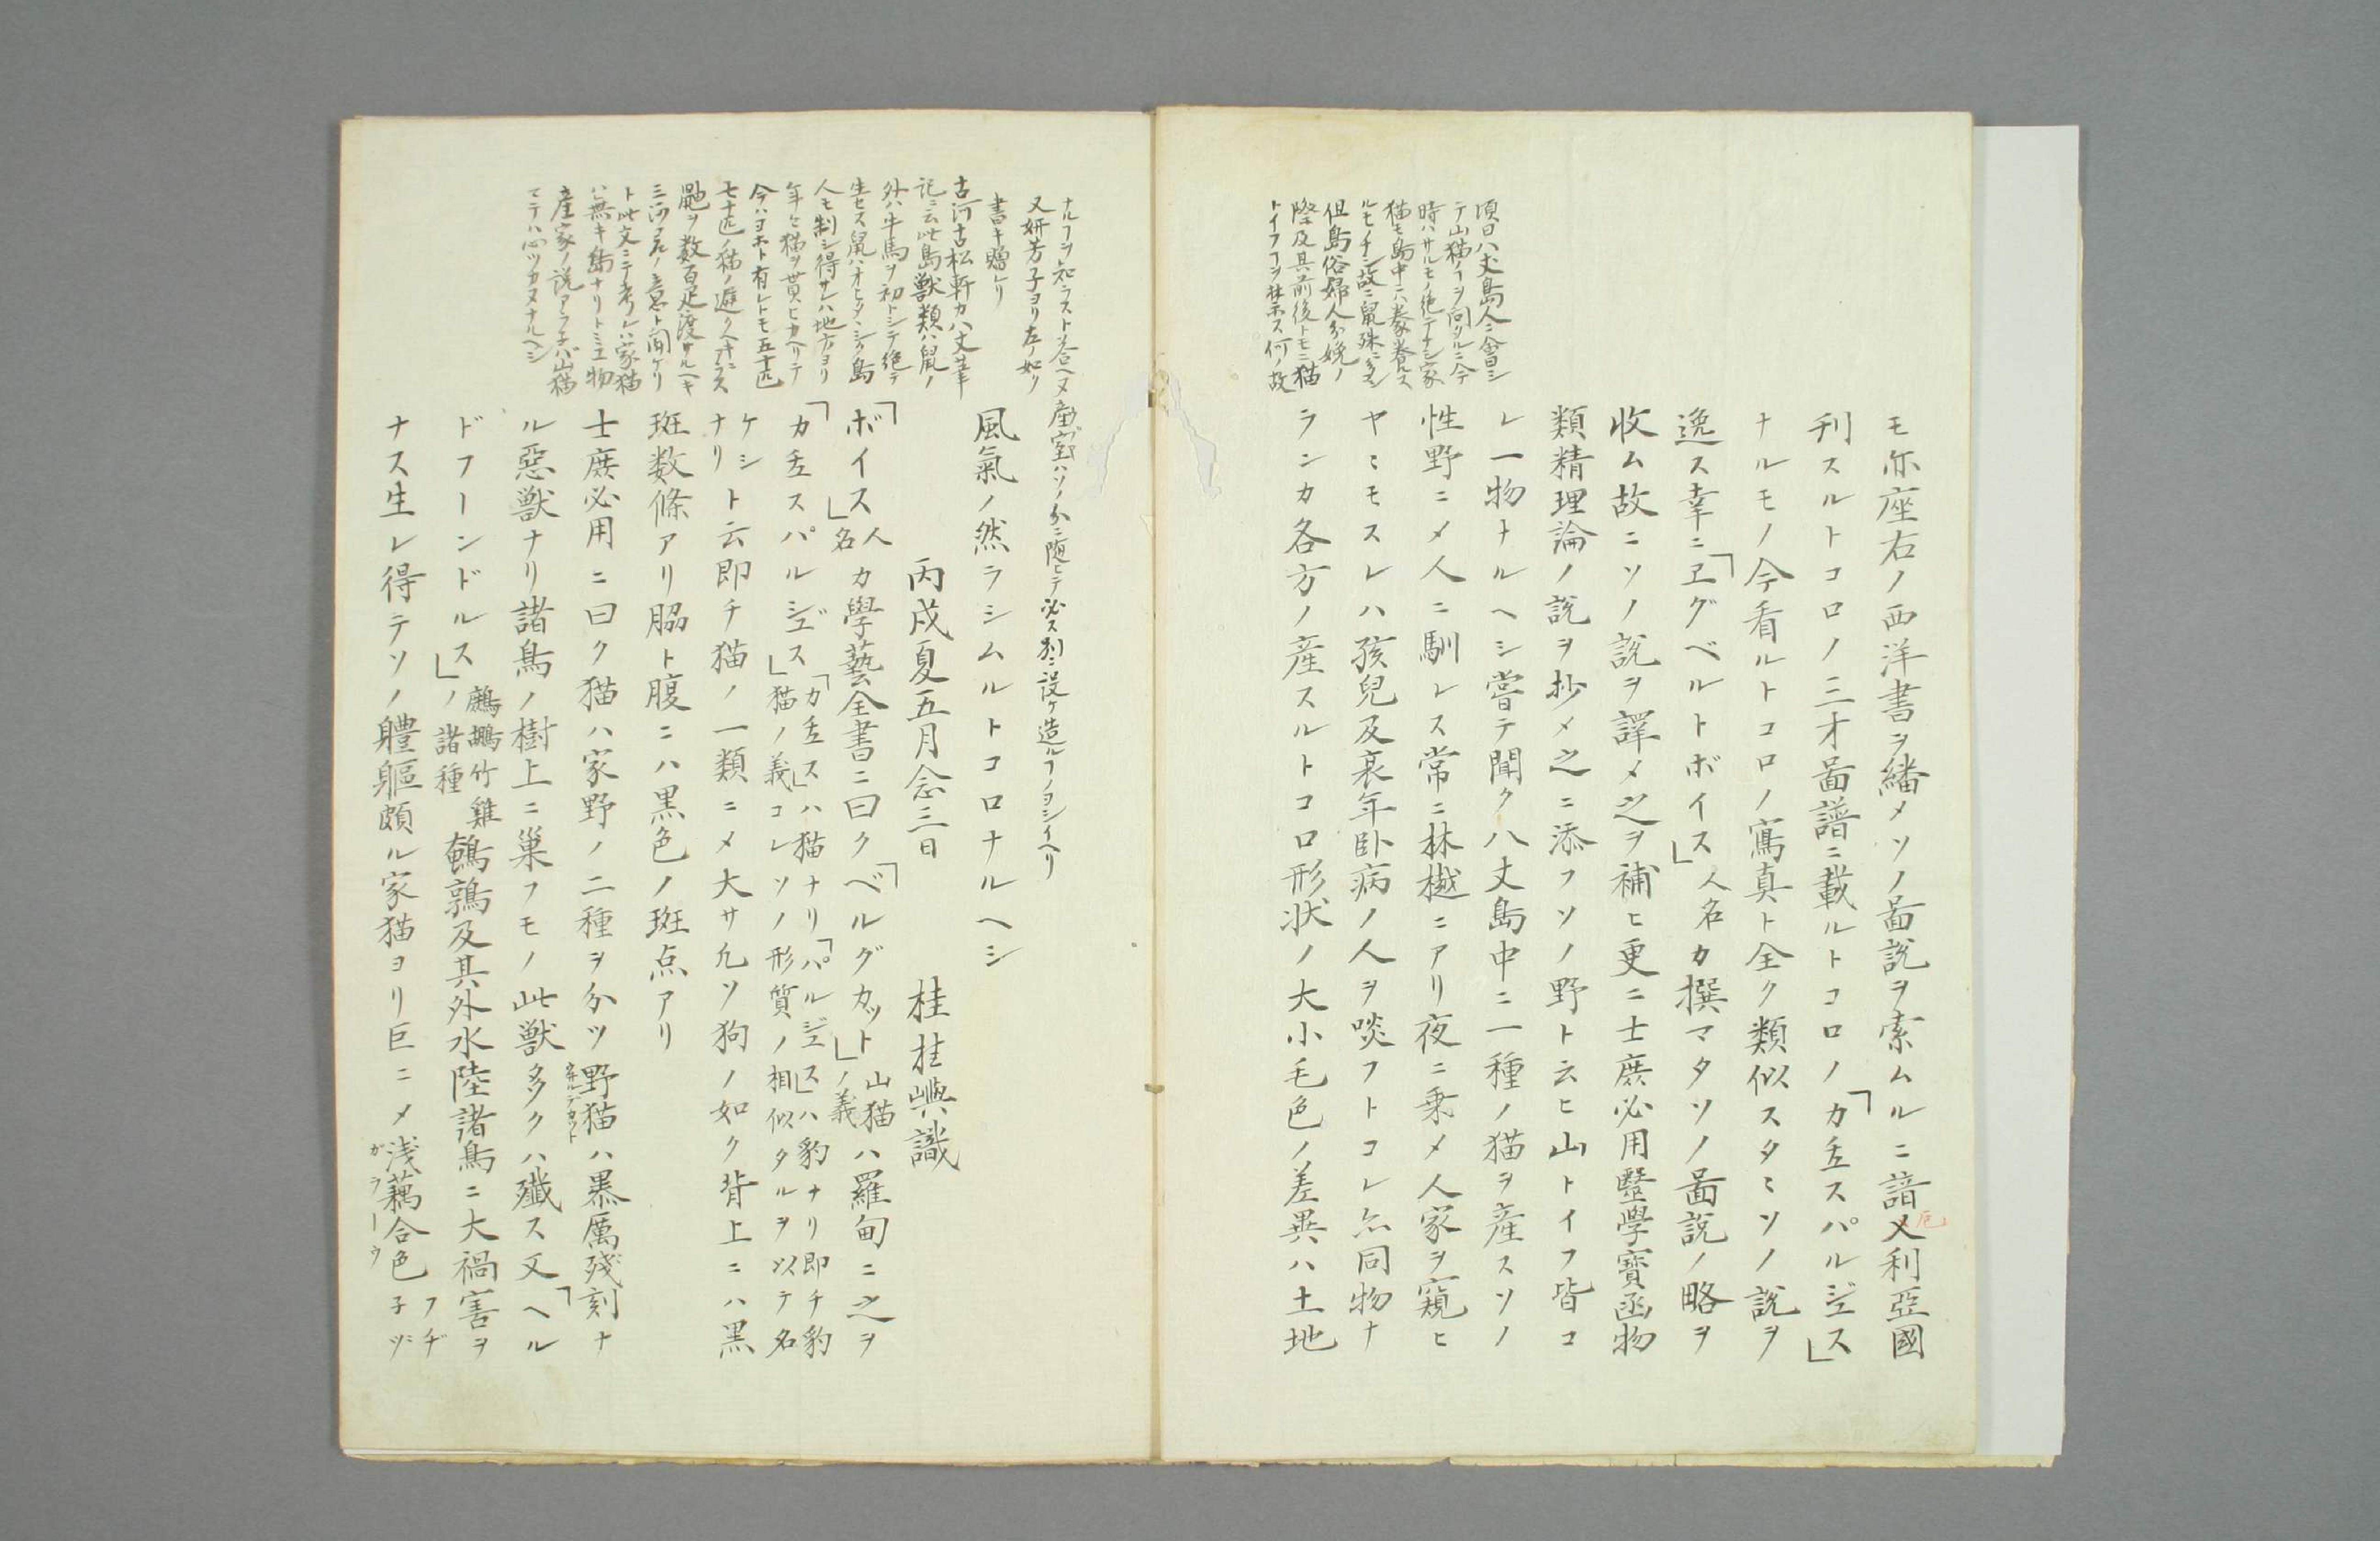 モ亦座右ノ西洋書ヲ繙メソノ啚説ヲ索ムルニ諳乂利亞國
厄
刊スルトコロノ三才啚譜ニ載ルトコロノ「カ〓スパルジヱス」
ナルモノ今看ルトコロノ寫真ト全ク類似スタミソノ説ヲ
逸ス幸ニ「ヱグベルトボイス」人名カ撰マタソノ啚説ノ略ヲ
收ム故ニソノ説ヲ譯メ之ヲ補ヒ更ニ士庶必用毉學寶函物
類精理論ノ説ヲ抄メ之ニ添フソノ野ト云ヒ山トイフ皆コ
レ一物ナルヘシ嘗テ聞ク八丈島中ニ一種ノ猫ヲ産スソノ
性野ニメ人ニ馴レス常ニ林樾ニアリ夜ニ乗メ人家ヲ窺ヒ
ヤヽモスレハ孩兒及衰年卧病ノ人ヲ啖フトコレ亦同物ナ
ランカ各方ノ産スルトコロ形状ノ大小毛色ノ差異ハ土地
頃日八丈島人ニ會シ
テ山猫ノヿヲ問フルニ今
時ハサルモノ絶テナシ家
猫モ島中ニハ豢養ス
ルモノナシ故ニ鼠殊ニ多シ
但島俗婦人分娩ノ
際及其前後トモニ猫
トイフヿヲ禁忌ス何ノ故
ナルヿヲ知ラスト答ヘヌ産室ハソノ分ニ随ヒテ必ス別ニ設ケ造ルヿノヨシイヘリ
又妍芳子ヨリ左ノ如ク
書キ贈レリ
古河古松軒カ八丈筆
記ニ云此島獣類ハ鼠ノ
外ハ牛馬ヲ初トシテ絶テ
生セス鼠ハオヒタヽシク島
人モ制シ得サレハ地方ヨリ
年々猫ヲ貰ヒカヘリテ
今ハヨホト有レトモ五十匹
七十匹ノ猫ノ避クヘキニアラス
鼬ヲ数百疋渡サルヘキ
ト此文ニテ考レハ家猫
ハ無キ島ナリトミユ物
産家ノ説アラネハ山猫
マテハ心ツカヌナルヘシ
風氣ノ然ラシムルトコロナルヘシ
丙戌夏五月念三日　桂桂嶼識
「ボイス」人名カ學藝全書ニ曰ク「ベルグカット」山猫ノ義ハ羅甸ニ之ヲ
「カ〓スパルジヱス」「カ〓ス」ハ猫ナリ「パルジヱス」ハ豹ナリ即チ豹
猫ノ義コレソノ形質ノ相似タルヲ以テ名
ケシナリト云即チ猫ノ一類ニメ大サ凢ソ狗ノ如ク背上ニハ黒
斑数條アリ脇ト腹ニハ黒色ノ斑点アリ
士庶必用ニ曰ク猫ハ家野ノ二種ヲ分ツ野猫ハ暴厲殘刻ナ
ル惡獣ナリ諸鳥ノ樹上ニ巣フモノ此獣多クハ殲ス又「ヘル
ドフーンドルス」ノ諸種鷓鴣竹雞鵪鶉及其外水陸諸鳥ニ大禍害ヲ
ナス生レ得テソノ軆軀頗ル家猫ヨリ巨ニメ浅藕合色フヂ子ヅ
ガラーウ